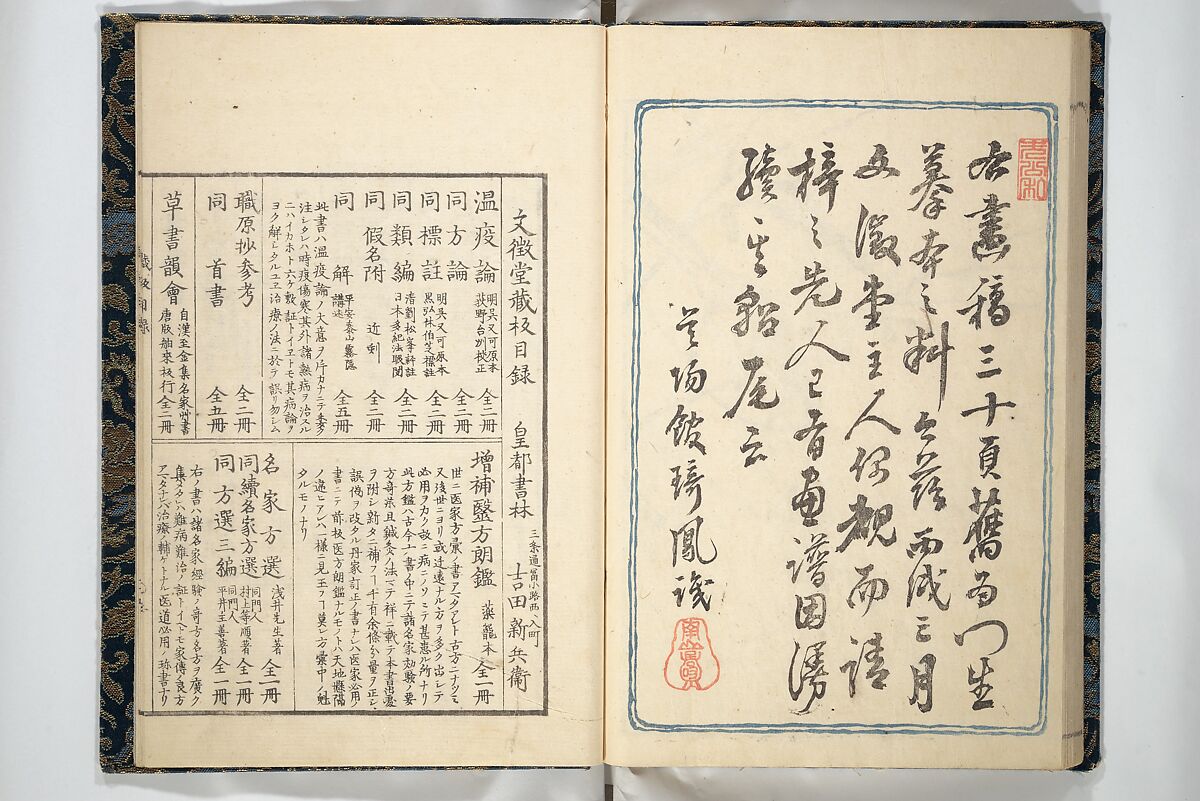 右畫稿三十頁舊為門生
摹本之料今茲而成三月
文徵堂主人仍觀而請
梓之先人已有画譜因謾
續之貂尾云
呉場館琦鳳識
文徴堂藏板目録　皇都書林　三条通冨小路西ヘ入町　吉田新兵衛
温疫論　明呉又可原本　荻野台州校正　全二冊
同方論　全二冊
同標註　明呉又可原本　黒弘林伯芝標註　全二冊
同類編　清劉松峯評註　日本多紀法眼閲　全二冊
同假名附　近刻　全二冊
同解　平安泰山講述　全五冊
此書ハ温疫論ノ大意ヲ片カナニテ委ク
注シタレハ時疫傷寒其外諸熱病ヲ治スル
ニハイカホト六ケ敷証トイヱトモ其病論ヲ
ヨク解シタルユヱ治療ノ法ニ於テ誤リ勿シム
職原抄参考　全二冊
同首書　全五冊
草書韻會　自漢至金集名家艸書　唐版舶來板行　全二冊
増補醫方朗鑑　薬籠本　全一冊
世ニ医家方彙ノ書アマタアレト古方ニナツミ
又後世ニヨリ或ハ迂遠ナル方ヲ多ク出シテ
必用ヲカク故ニ病ニノゾミテ甚患ル所ナリ
此方鑑ハ古今ノ書ノ中ニテ諸名家効験ノ要
方奇薬且鍼灸ノ法マテ祥ニ載テ本書
ヲ附シ新タニ補フ一千有余條分量ヲ正シ
誤偽ヲ改タル丹家訂正ノ書ナレハ医家必用ノ
書ニテ前板医方朗鑑ナルモノトハ天地懸隔
ノ違ヒアレハ一様ニ見玉フ莫レ方彙中ノ魁
タルモノナリ
名家方選　浅井先生著　全一冊
同續名家方選　同門人　村上等順著　全一冊
同方選三編　同門人　平井主善著　全一冊
右ノ書ハ諸名家経験ノ奇方名方ヲ廣ク
集タレハ難病難治ノ証トイヘトモ家傳ノ良方
アマタナレハ治療ノ輔ケトナル医道必用ノ珎書ナリ
藏板目録